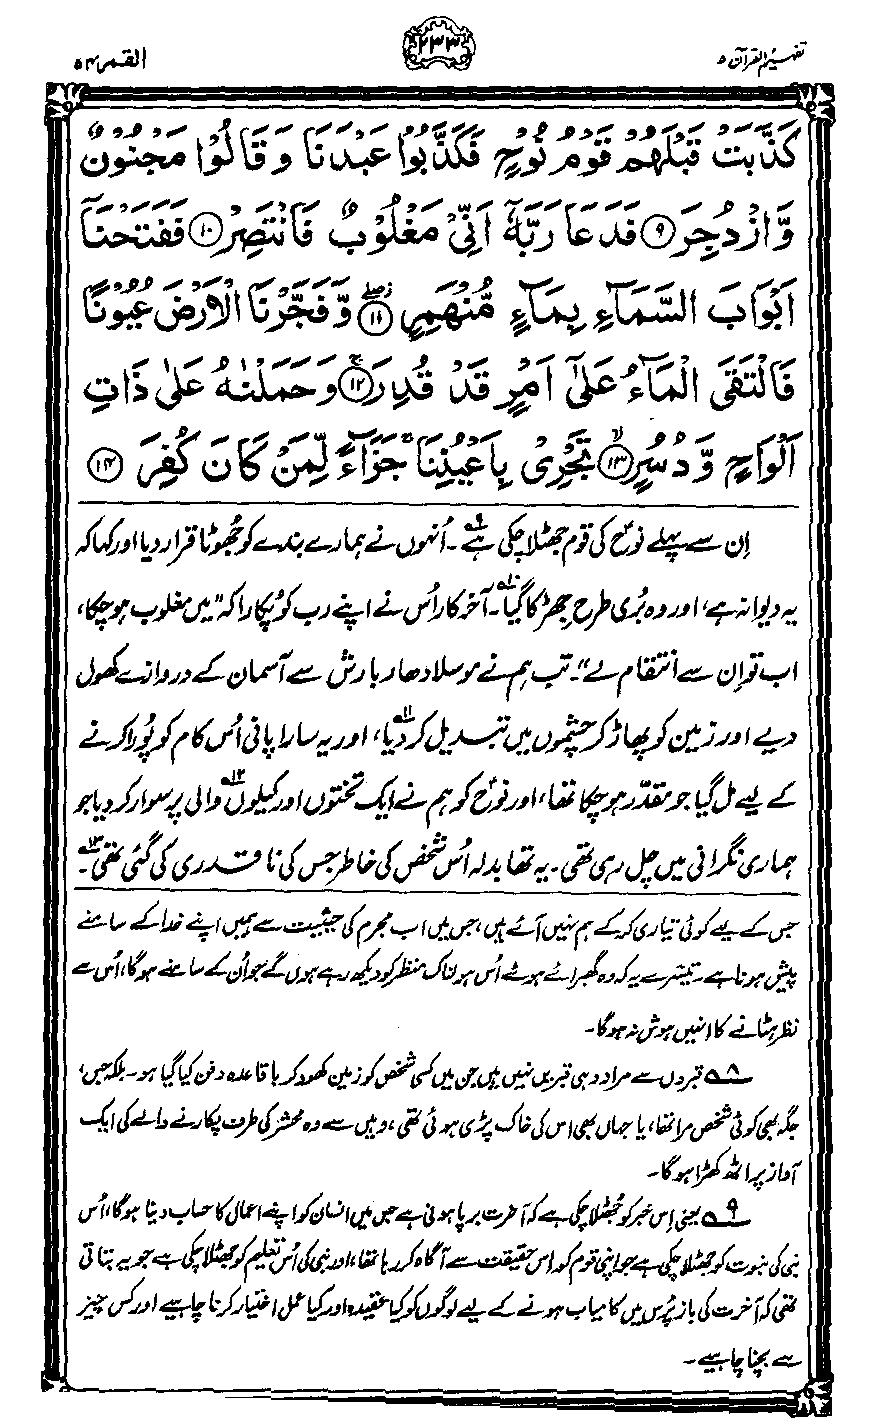 تفہیم القرآن ۵
۲۳۳
القمر ۵۴
كَذَّبَتْ قَبْلَهُمْ قَوْمُ نُوْحٍ فَكَذَّبُوْا عَبْدَنَا وَ قَالُوْا مَجْنُوْنٌ
وَّازْدُجِرَ ۹ فَدَعَا رَبَّهٗۤ اَنِّیْ مَغْلُوْبٌ فَانْتَصِرْ ۱۰ فَفَتَحْنَاۤ
اَبْوَابَ السَّمَآءِ بِمَآءٍ مُّنْهَمِرٍ ۱۱ وَّفَجَّرْنَا الْاَرْضَ عُیُوْنًا
فَالْتَقَی الْمَآءُ عَلٰۤی اَمْرٍ قَدْ قُدِرَ ۱۲ وَحَمَلْنٰهُ عَلٰی ذَاتِ
اَلْوَاحٍ وَّدُسُرٍ ۱۳ تَجْرِیْ بِاَعْیُنِنَا جَزَآءً لِّمَنْ كَانَ كُفِرَ ۱۴
اِن سے پہلے نوحؑ کی قوم جھٹلا چکی ہے۹۔ اُنہوں نے ہمارے بندے کو جُھوٹا قرار دیا اور کہا کہ
یہ دیوانہ ہے، اور وہ بُری طرح جِھڑکا گیا۱۰۔ آخر کار اُس نے اپنے رب کو پُکارا کہ ”میں مغلوب ہو چکا،
اب تو اِن سے انتقام لے“۔ تب ہم نے موسلا دھار بارش سے آسمان کے دروازے کھول
دیے اور زمین کو پھاڑ کر چشموں میں تبدیل کر دیا۱۱، اور یہ سارا پانی اُس کام کو پُورا کرنے
کے لیے مل گیا جو مقدّر ہو چکا تھا، اور نوحؑ کو ہم نے ایک تختوں اور کیلوں۱۲ والی پر سوار کر دیا جو
ہماری نگرانی میں چل رہی تھی۔ یہ تھا بدلہ اُس شخص کی خاطر جس کی نا قدری کی گئی تھی۱۳۔
جس کے لیے کوئی تیاری کر کے ہم نہیں آئے ہیں، جس میں اب مجرم کی حیثیت سے ہمیں اپنے خدا کے سامنے
پیش ہونا ہے۔ تیسرے یہ کہ وہ گھبرائے ہوئے اُس ہولناک منظر کو دیکھ رہے ہوں گے جو اُن کے سامنے ہوگا، اُس سے
نظر ہٹانے کا انہیں ہوش نہ ہوگا۔
۸ قبروں سے مراد وہی قبریں نہیں ہیں جن میں کسی شخص کو زمین کھود کر باقاعدہ دفن کیا گیا ہو۔ بلکہ جس،
جگہ بھی کوئی شخص مرا تھا، یا جہاں بھی اس کی خاک پڑی ہوئی تھی، وہیں سے وہ محشر کی طرف پکارنے والے کی ایک
آواز پر اٹھ کھڑا ہوگا۔
۹ یعنی اِس خبر کو جُھٹلا چکی ہے کہ آخرت برپا ہونی ہے جس میں انسان کو اپنے اعمال کا حساب دینا ہوگا، اُس
نبی کی نبوت کو جھٹلا چکی ہے جو اپنی قوم کو اِس حقیقت سے آگاہ کر رہا تھا، اور نبی کی اُس تعلیم کو جُھٹلا چکی ہے جو یہ بتاتی
تھی کہ آخرت کی باز پُرس میں کامیاب ہونے کے لیے لوگوں کو کیا عقیدہ اور کیا عمل اختیار کرنا چاہیے اور کس چیز
سے بچنا چاہیے۔